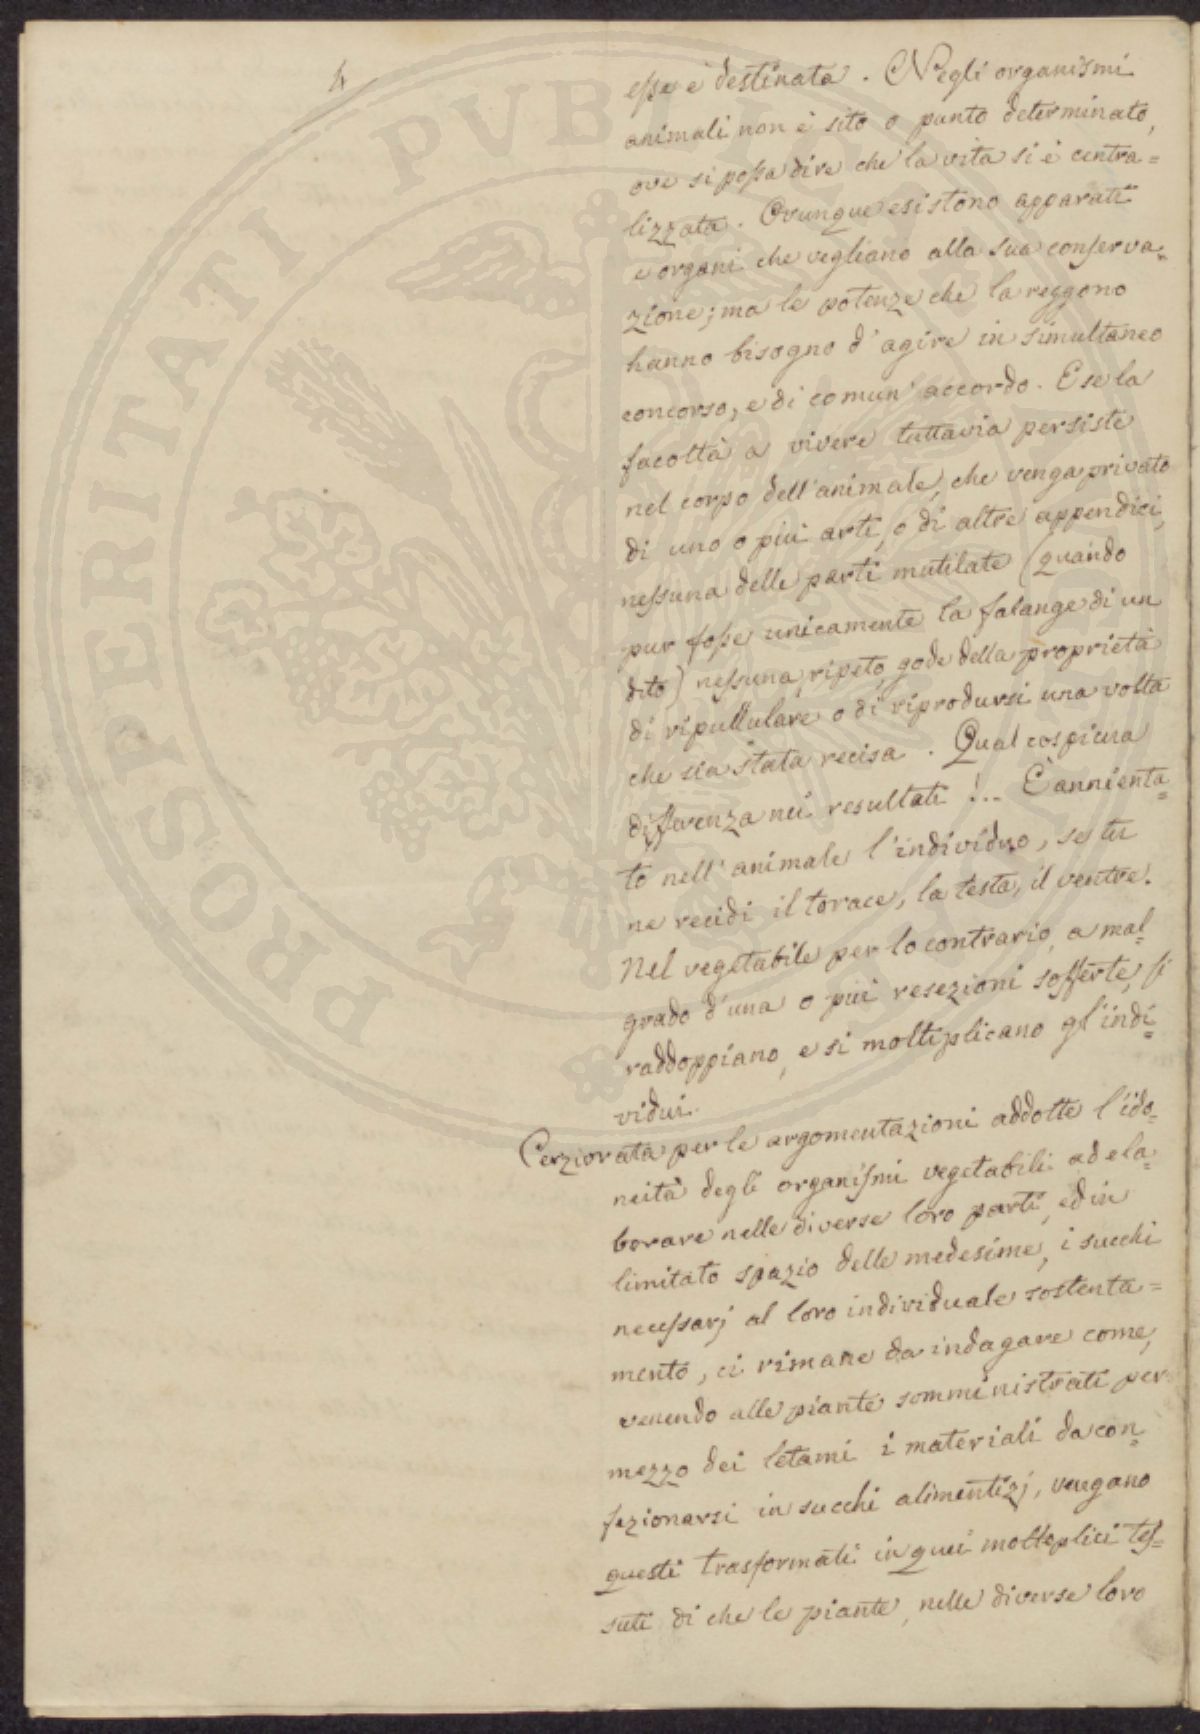 4
esse è destinata. Negli organismi
animali non è sito o punto determinato,
ove si possa dire che la vita si è centra=
lizzata. Ovunque esistono apparati
e organi che vegliano alla sua conserva=
zione; ma le potenze che la reggono
hanno bisogno d'agire in simultaneo
concorso, e di comun' accordo. E se la
facoltà a vivere tuttavia persiste
nel corpo dell'animale, che venga privato
di uno o più arti, o di altre appendici,
nessuna delle parti mutilate (quando
pur fosse unicamente la falange di un
dito) nessuna, ripeto, gode della proprietà
di ripullulare o di riprodursi una volta
che sia stata recisa. Qual cospicua
differenza nei resultati!... È annienta=
to nell'animale l'individuo, se tu
ne recidi il torace, la testa, il ventre.
Nel vegetabile per lo contrario, a mal=
grado d'una o più resezioni sofferte, si
raddoppiano, e si moltiplicano gl'indi=
vidui.
Cerziorata per le argomentazioni addotte l'ido=
neità degli organismi vegetabili ad ela=
borare nelle diverse loro parti, ed in
limitato spazio delle medesime, i succhi
necessarj al loro individuale sostenta=
mento, ci rimane da indagare come,
venendo alle piante somministrati per
mezzo dei letami i materiali da con=
fezionarsi in succhi alimentizj, vengano
questi trasformati in quei molteplici tes=
suti di che le piante, nelle diverse loro
PROSPERITATI PUBLICAE